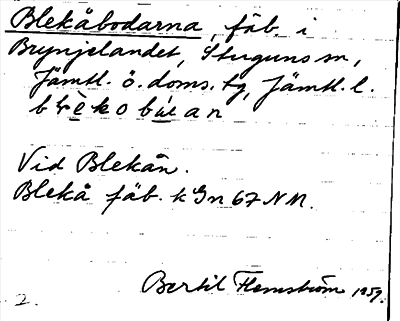 Blekåbodarna, fäb. i
Brynjelandet, Stuguns sn,
Jämtl. ö. doms. tg, Jämtl. l.
Vid Blekån.
Blekå fäb. k Gn 67 NM.
Bertil Flemström 1959.
2.